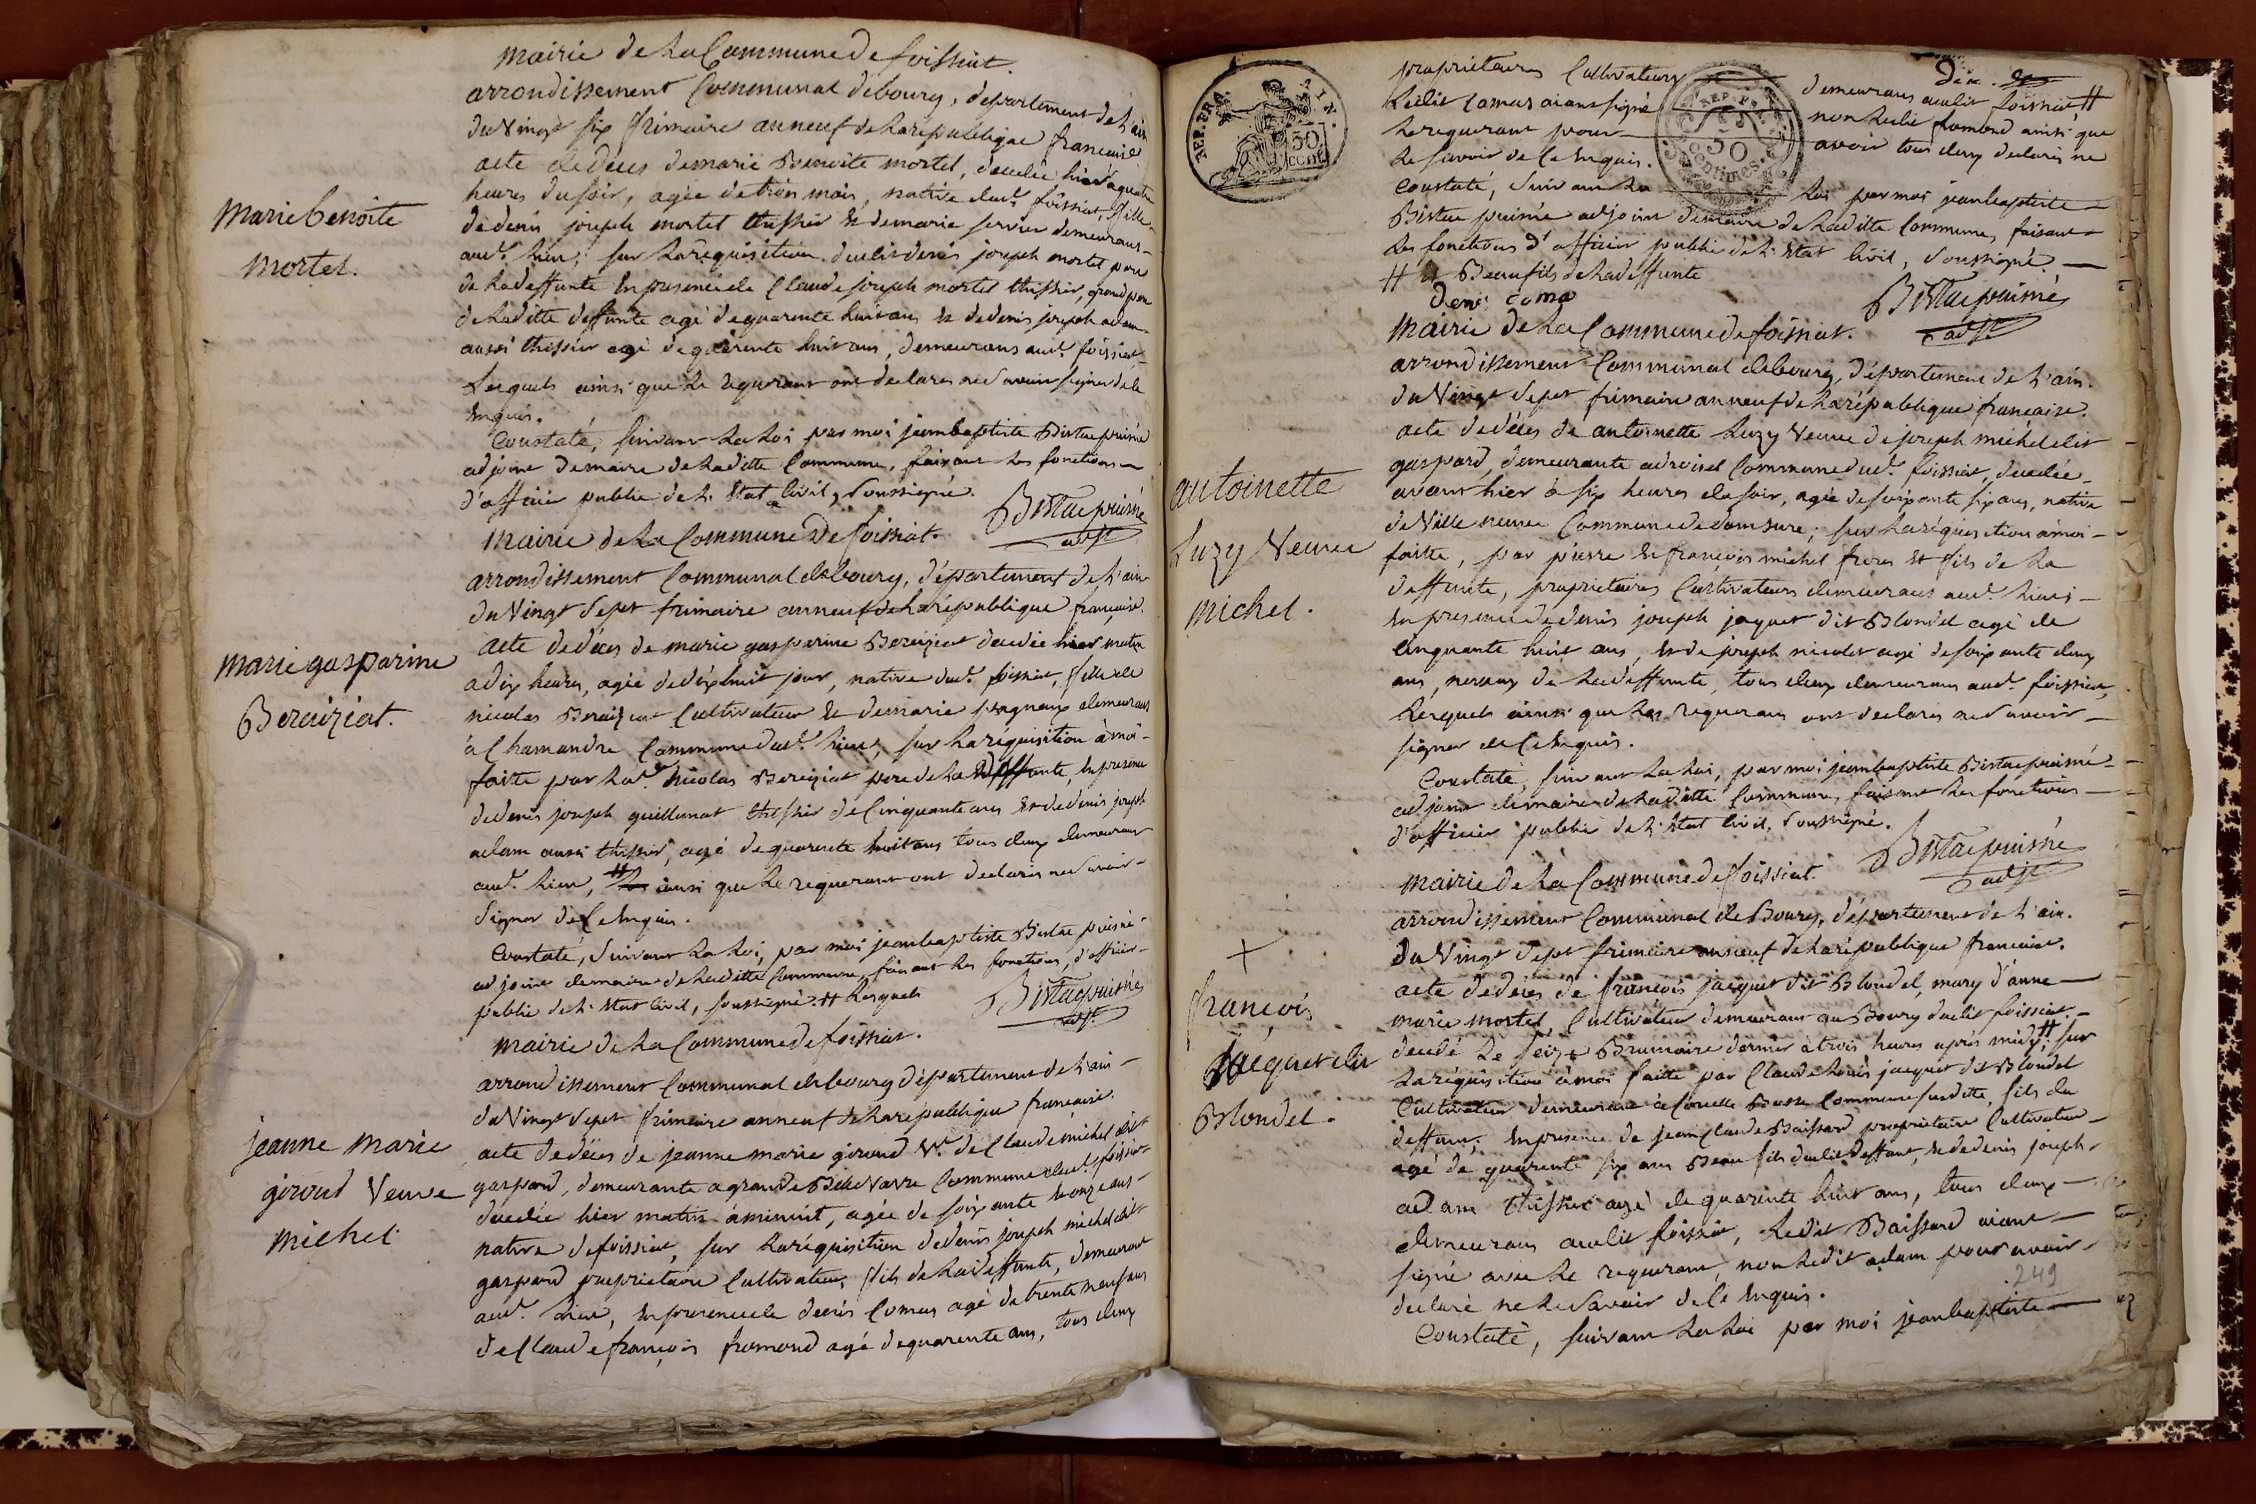 mairie de la Commune de foissiat.
arrondissement Communal debourg, departement de l'ain
du Vingt six frimaire an neuf de la republique francaise
acte de deces de marie Benoite mortel, decedée hier a quatre
heures du soir, agée de trois mois, native dud. foissiat, fille
de denis joseph mortel thissier & de marie servier demeurans
aud. lieu; sur la requisition dudit denis joseph mortel pere
de la deffunte En presence de Claude joseph mortel thissier, grand pere
de laditte deffunte agé de quarente huit ans & de denis joseph adam
aussi thissier agé de quarente huit ans, demeurans aud. foissiat
Lesquels ainsi que le requerant ont declarés ne savoir signer de ce
Enquis.
Constaté, suivant la Loi par moi jeanbaptiste Bistac puisné
adjoint demaire de laditte Commune, faisant les fonctions
d'officier public de l'Etat Civil, soussigné.
Bistac puisné
adjt
Marie benoite
mortel.
mairie de la Commune de foissiat.
arrondissement Communal debourg, departement de l'ain
du Vingt sept frimaire an neuf de la république française.
acte de déces de marie gasparine Beraiziat decedée hier matin
a dix heures, agée de dix huit jour, native dud. foissiat, fille de
nicolas Beraiziat Cultivateur & de marie pagneux demeurans
à Chamandre Commune dud. lieu, sur la réquisition à moi
faitte par led. Nicolas Bereziat pere de la deffunte, En presence
de denis joseph guillemot thissier de Cinquante ans & de denis joseph
adam aussi thissier, agé de quarente huit ans tous deux demeurans
aud. lieu, # ainsi que le requerant ont declarés ne savoir
signer de Ce Enquis.
Constaté, suivant la Loi, par moi jeanbaptiste Bistac puisné
adjoint demaire de laditte Commune, faisant les fonctions, d'officier
public de l'Etat Civil, soussigné. # Lesquels
Bistac puisné
adjt
marie gasparine
Beraiziat.
mairie de la Commune de foissiat.
arrondissement Communal debourg département de l'ain
du Vingt sept frimaire an neuf de la republique francaise.
acte de déces de jeanne marie giroud Ve. de Claude michel dit
gaspard, demeurante a grande Commune dud. foissiat
decedée hier matin à minuit, agée de soixante & onze ans
native de foissiat, sur la réquisition de denis joseph michel dit
gaspard proprietaire Cultivateur, fils de la deffunte, demeurant
aud. lieu, En presence de denis Comas agé de trente neuf ans
de Claude françois fromond agé de quarente ans, tous deux
jeanne Marie
giroud Veuve
michel.
Dix
REP. FRA. AIN.
50
cent.
REP. FRA.
50
centimes
proprietaires Cultivateurs demeurans audit foissiat, #
Ledit Comas aiant signé non Ledit fromond ainsi que
le requerant pour avoir tous deux declarés ne
le savoir de Ce Enquis.
Constaté, suivant la Loi par moi jeanbaptiste
Bistac puisné adjoint demaire de laditte Commune, faisant
les fonctions d'officier public de l'Etat Civil, soussigné.
# & Beaufils de la deffunte
denis coma
Bistac puisné
adjt
mairie de la Commune de foissiat.
arrondissement Communal debourg, département de l'ain.
du Vingt sept frimaire an neuf de la république francaise.
acte de déces de antoinette Luzy Veuve de joseph michel dit
gaspard, demeurante au Commune dud. foissiat, decedée
avant hier à six heures du soir, agée de soixante six ans, native
de Ville neuve Commune de domsure; sur la réquisition à moi
faitte, par pierre & françois michel freres & fils de la
deffunte, proprietaires Cultivateurs demeurans aud. lieu;
En presence de denis joseph jaquet dit Blondel agé de
Cinquante huit ans, & de joseph nicolet agé de soixante deux
ans, neveux de la deffunte, tous deux demeurans aud. foissiat,
Lesquels ainsi que les requerans ont declarés ne savoir
signer de Ce Enquis.
Constaté, suivant la Loi, par moi jeanbaptiste Bistac puisné
adjoint demaire de laditte Commune, faisant les fonctions
d'officier public de l'Etat Civil, soussigné.
Bistac puisné
adjt
antoinette
Luzy Veuve
michel.
mairie de la Commune de foissiat
arrondissement Communal de Bourg, département de l'ain.
du Vingt sept frimaire an neuf de la république francaise.
acte de déces de françois jacquet dit Blondel, mary d'anne
marie mortel, Cultivateur demeurant au Bourg dudit foissiat.
decedé le seize Brumaire dernier à trois heures après midy, # sur
la réquisition à moi faitte par Claude Louis jacquet dit Blondel
Cultivateur demeurant à Basse Commune susditte, fils du
deffunt; En presence de jean Claude Baissard proprietaire Cultivateur
agé de quarente six ans Beau fils dudit deffunt, & de denis joseph
adam thissier agé de quarente huit ans, tous deux
demeurans audit foissiat, Ledit Baissard aiant
signé avec le requerant, non Ledit adam pour avoir
declaré ne le savoir de Ce Enquis.
Constaté, suivant la Loi par moi jeanbaptiste
+
françois
jacquet dit
Blondel.
249